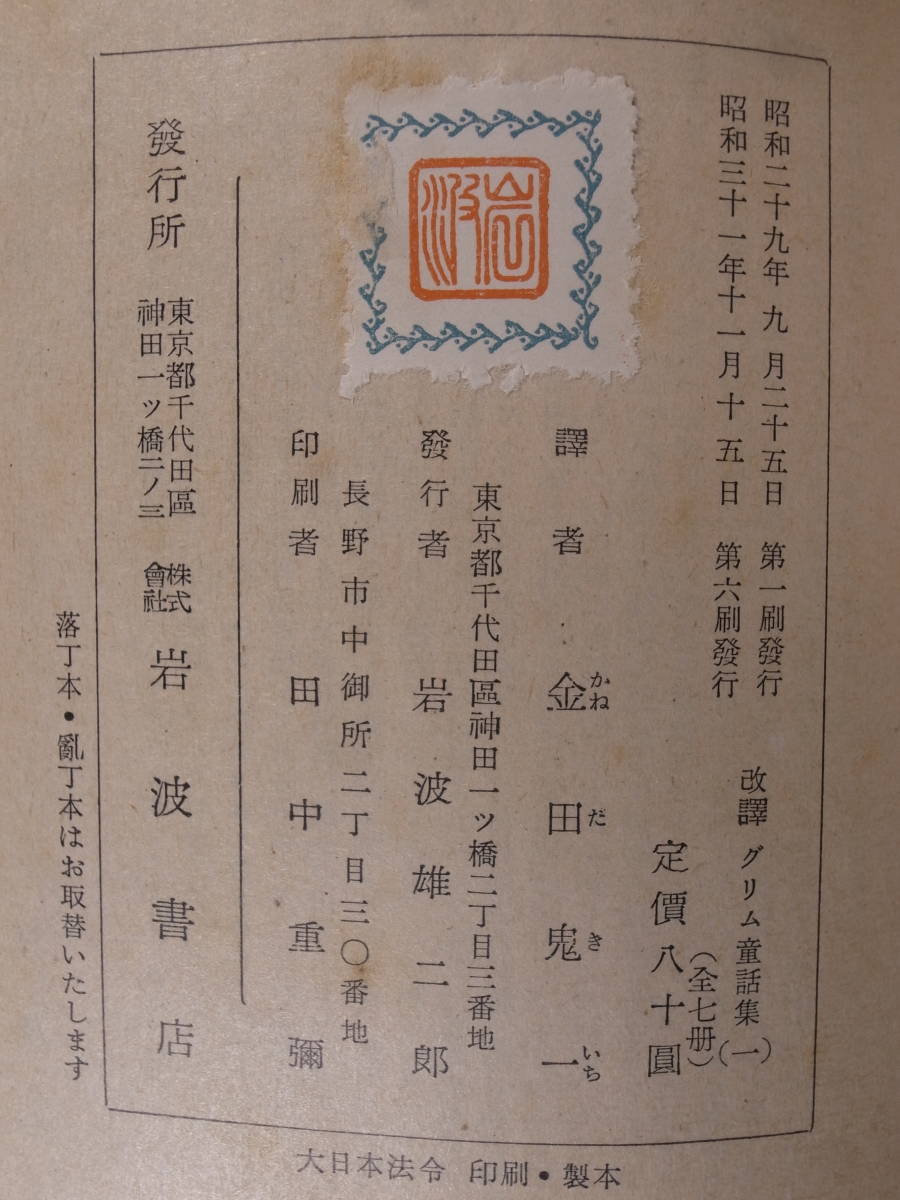 昭和二十九年 九 月二十五日 第一刷發行
昭和三十一年十一月十五日 第六刷發行
改譯 グリム童話集(一)
(全七册)
定價八十圓
譯者 金田鬼一
かねだきいち
東京都千代田區神田一ッ橋二丁目三番地
發行者 岩波雄二郎
長野市中御所二丁目三〇番地
印刷者 田中重彌
岩波
發行所 東京都千代田區
神田一ッ橋二ノ三
株式
會社
岩波書店
落丁本・亂丁本はお取替いたします
大日本法令 印刷・製本